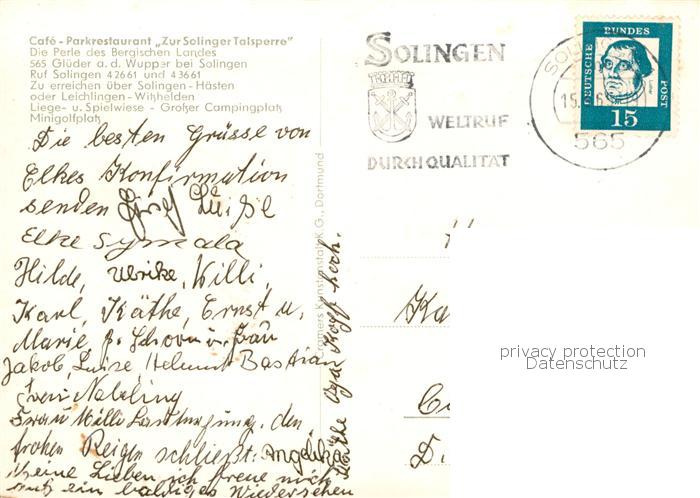 Café - Parkrestaurant „Zur Solinger Talsperre"
Die Perle des Bergischen Landes
565 Glüder a. d. Wupper bei Solingen
Ruf Solingen 42661 und 43661
Zu erreichen über Solingen - Hästen
oder Leichlingen - Witzhelden
Liege- u. Spielwiese - Großer Campingplatz
Minigolfplatz
Die besten Grüsse von
Elkes Konfirmation
senden Josef
Elke
Hilde, Ulrike, Willi,
Karl, Käthe, Ernst u.
Marie, u. Frau
Jakob, Luise Helmut Bastian
Frau Nebeling
Frau Milli den
frohen Reigen schließt: Angelika
Meine Lieben ich freue mich
auf ein baldiges Wiedersehen
Käthe
Cramers Kunstanstalt K.G., Dortmund
SOLINGEN
WELTRUF
DURCH QUALITÄT
565
DEUTSCHE BUNDES POST
15
Ka
D.
privacy protection
Datenschutz